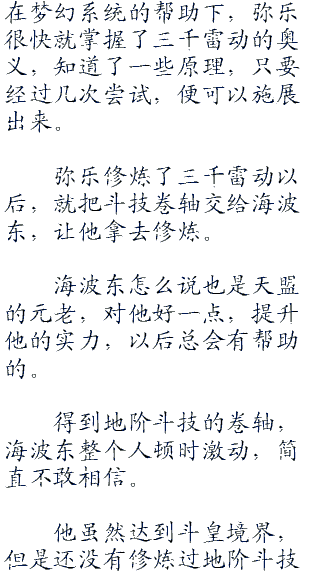 在梦幻系统的帮助下，弥乐
很快就掌握了三千雷动的奥
义，知道了一些原理，只要
经过几次尝试，便可以施展
出来。
弥乐修炼了三千雷动以
后，就把斗技卷轴交给海波
东，让他拿去修炼。
海波东怎么说也是天盟
的元老，对他好一点，提升
他的实力，以后总会有帮助
的。
得到地阶斗技的卷轴，
海波东整个人顿时激动，简
直不敢相信。
他虽然达到斗皇境界，
但是还没有修炼过地阶斗技